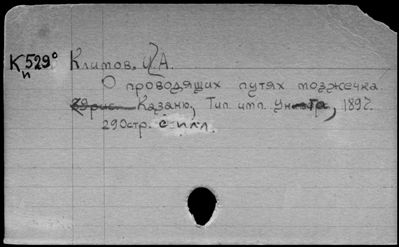 К529° Климов, И. А.
п
О проводящих путях мозжечка.
Казань, Тип. имп. Ун-та, 1897.
290стр. с илл.